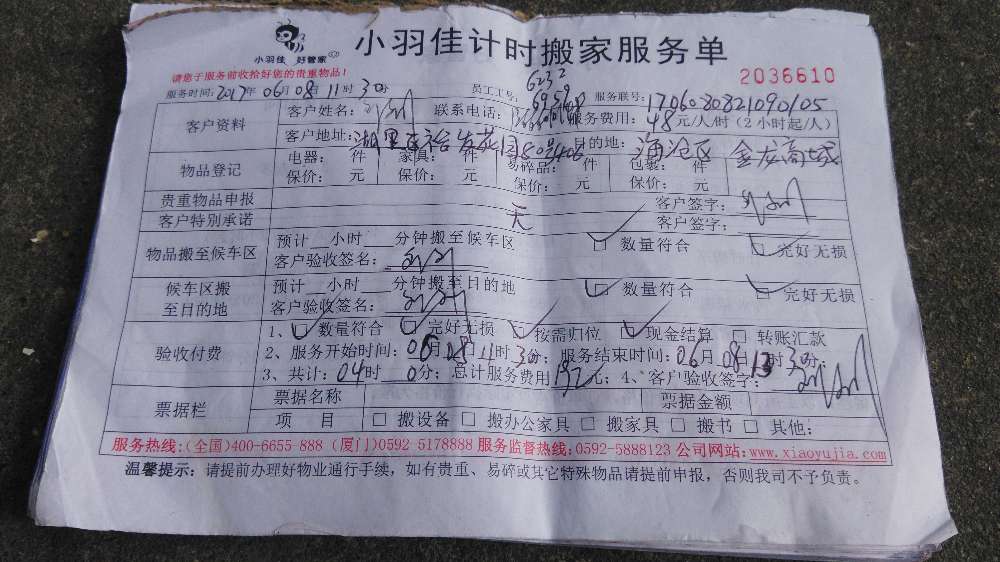 小羽佳 好管家
小羽佳计时搬家服务单
请您于服务前收拾好您的贵重物品！
2036610
服务时间：2017年06月08日11时30分 员工工号：6232 6959 服务联号：1706080821090105
客户资料
客户姓名： 联系电话： 服务费用：48元/人/时（2小时起/人）
客户地址：湖里区裕发花园50号406 目的地：海沧区 金龙商城
物品登记
电器： 件 家具： 件 易碎品： 件 包裹： 件
保价： 元 保价： 元 保价： 元 保价： 元
贵重物品申报 无 客户签字：
客户特别承诺 客户签字：
物品搬至候车区
预计__小时___分钟搬至候车区 □ 数量符合 □ 完好无损
客户验收签名：
候车区搬至目的地
预计__小时___分钟搬至目的地 □ 数量符合 □ 完好无损
客户验收签名：
验收付费
1、□ 数量符合 □ 完好无损 □ 按需归位 □ 现金结算 □ 转账汇款
2、服务开始时间：06月08日11时30分；服务结束时间：06月08日13时30分；
3、共计：04时0分；总计服务费用192元；4、客户验收签字：
票据栏
票据名称 票据金额
项 目 □ 搬设备 □ 搬办公家具 □ 搬家具 □ 搬书 □ 其他：
服务热线：(全国)400-6655-888 (厦门)0592-5178888 服务监督热线：0592-5888123 公司网站：www.xiaoyujia.com
温馨提示：请提前办理好物业通行手续，如有贵重、易碎或其它特殊物品请提前申报，否则我司不予负责。